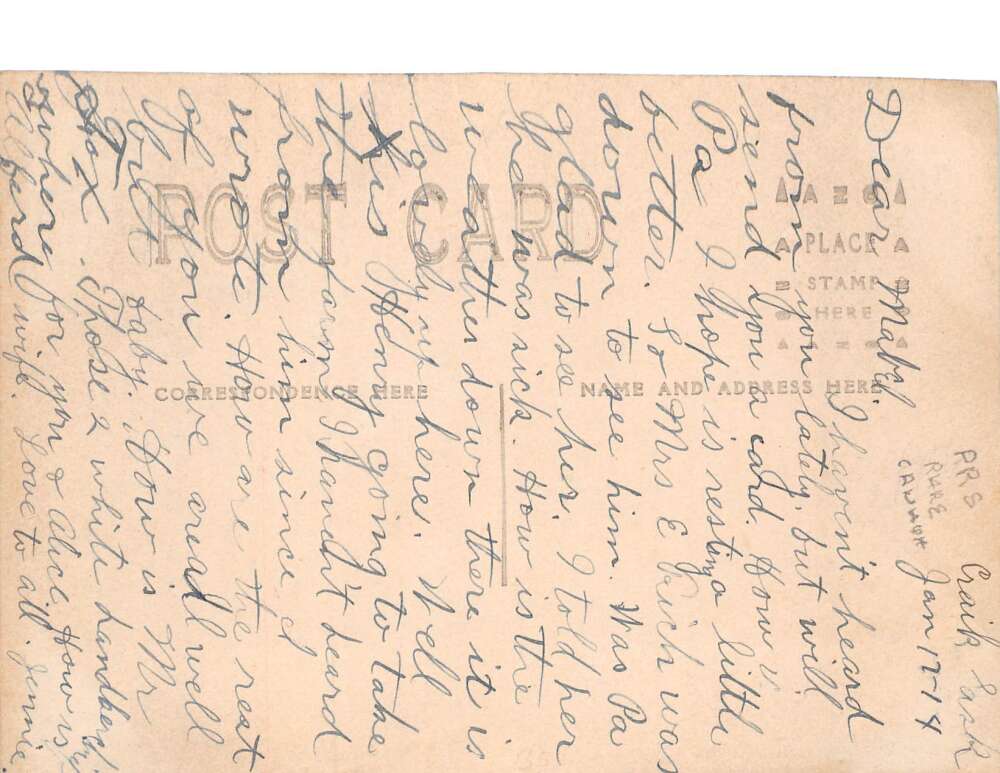 Craik Sask
Jan 17-14
PRS
RARE
CANADA
Dear Mabs.
I haven't heard
from you lately, but will
send you a card. How is
Pa I hope is resting a little
better. So Mrs E Buich was
down to see him. Was Pa
glad to see her. I told her
he was sick. How is the
weather down there it is
lovely up here. Well
is Henry going to take
the farm I haven't heard
from him since I
wrote. How are the rest
of you we are all well
but baby. How is Mr
Fox. Those 2 white handkerchiefs
where for you & Alice. How is
Alferd wife. Love to all. Jennie
POST CARD
CORRESPONDENCE HERE
NAME AND ADDRESS HERE
AZO
PLACE
STAMP
HERE
AZO